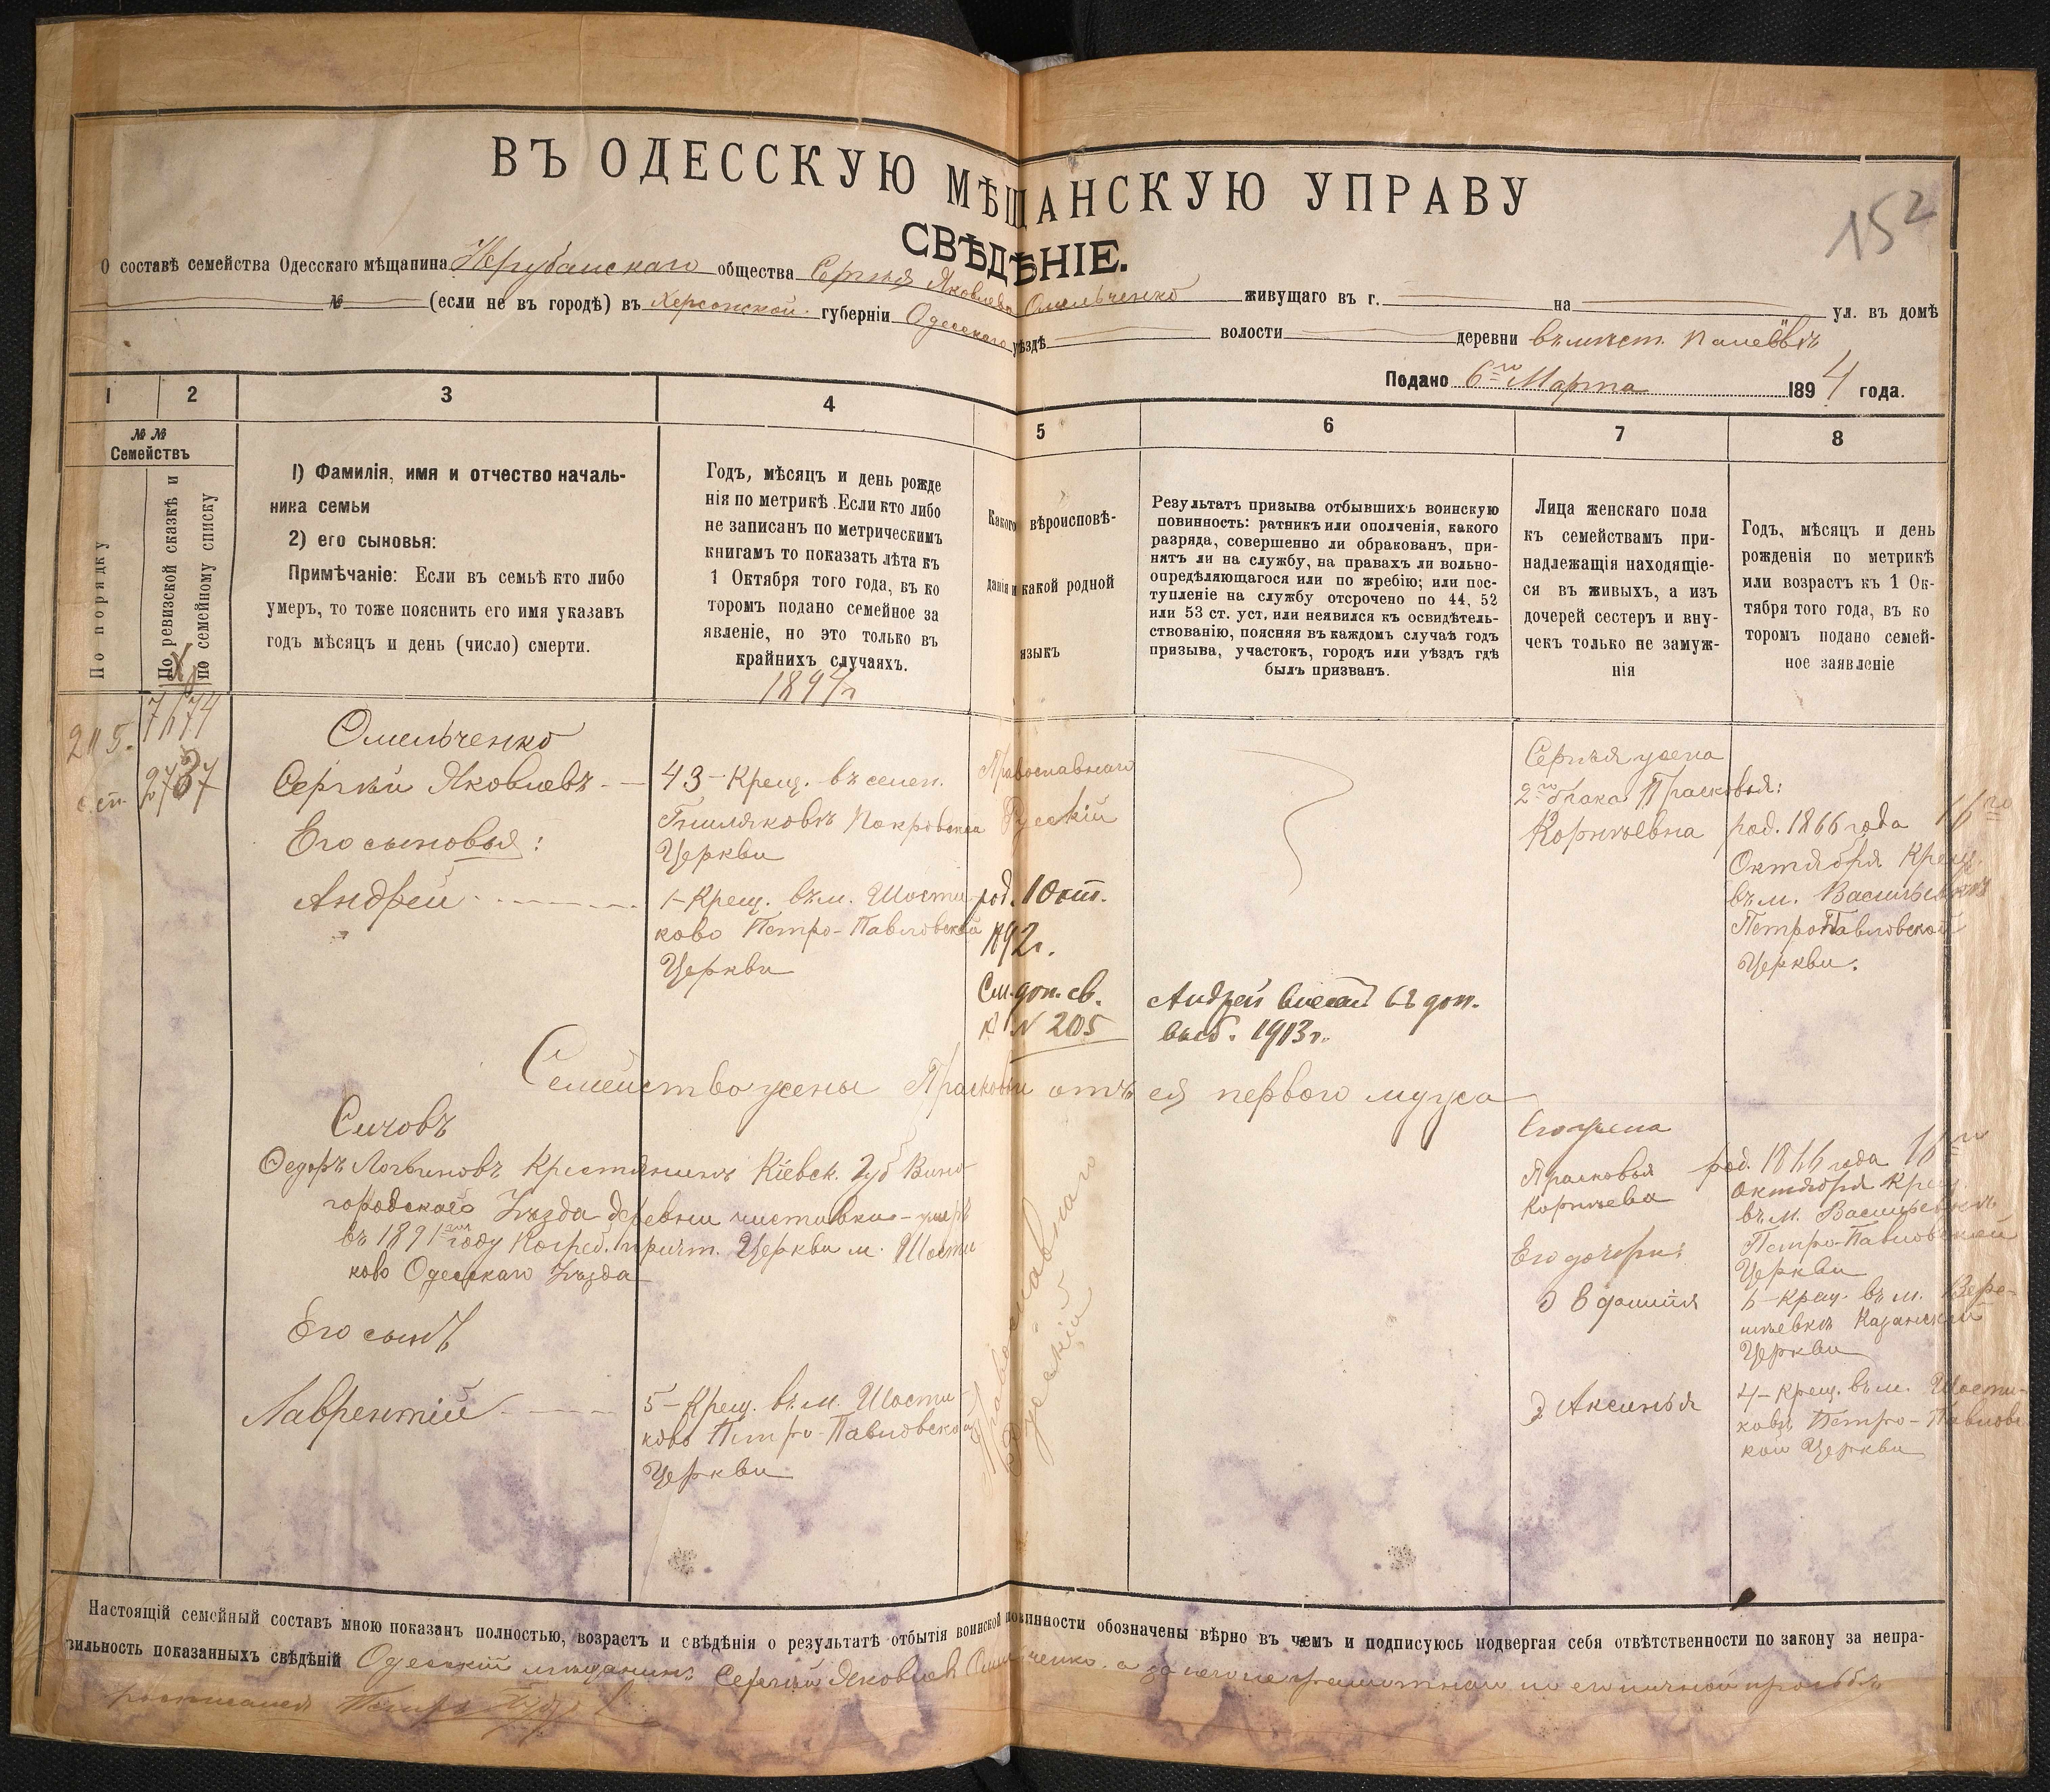 ВЪ ОДЕССКУЮ МѢЩАНСКУЮ УПРАВУ
152
СВѢДѢНІЕ.
О составѣ семейства Одесскаго мѣщанина общества Сергѣя Яковлева Омельченко живущаго въ г. на ул. въ домѣ
№ (если не въ городѣ) въ Херсонской губерніи Одесскаго уѣздѣ волости деревни въ мѣст.
Подано 6го Марта 1894 года.
1 2 3 4 5 6 7 8
№ №
Семействъ
По порядку
По ревизской сказкѣ и
по семейному списку
1) Фамилія, имя и отчество началь-
ника семьи
2) его сыновья:
Примѣчаніе: Если въ семьѣ кто либо
умеръ, то тоже пояснить его имя указавъ
годъ мѣсяцъ и день (число) смерти.
Годъ, мѣсяцъ и день рожде
нія по метрикѣ. Если кто либо
не записанъ по метрическимъ
книгамъ то показать лѣта къ
1 Октября того года, въ ко
торомъ подано семейное за
явленіе, но это только въ
крайнихъ случаяхъ.
1894г
Какого вѣроисповѣ-
данія и какой родной
языкъ
Результатъ призыва отбывшихъ воинскую
повинность: ратникъ или ополченія, какого
разряда, совершенно ли обракованъ, при-
нятъ ли на службу, на правахъ ли вольно-
опредѣляющагося или по жребію; или пос-
тупленіе на службу отсрочено по 44, 52
или 53 ст. уст. или неявился къ освидѣтель-
ствованію, поясняя въ каждомъ случаѣ годъ
призыва, участокъ, городъ или уѣздъ гдѣ
былъ призванъ.
Лица женскаго пола
къ семействамъ при-
надлежащія находящіе-
ся въ живыхъ, а изъ
дочерей сестеръ и вну-
чекъ только не замуж-
нія
Годъ, мѣсяцъ и день
рожденія по метрикѣ
или возрастъ къ 1 Ок-
тября того года, въ ко
торомъ подано семей-
ное заявленіе
Омельченко
Сергѣй Яковлевъ
43 - Крещ. въ селен.
Гниляковѣ Покровской
Церкви
Православнаго
Русскій
Сергѣя жена
2го брака Прасковья:
Корнѣевна
род. 1866 года 16го
Октября Крещ.
въ м. Васильевкѣ
Петро Павловской
Церкви.
Его сыновья:
Андрей
1 - Крещ. въ м. Шости
ково Петро-Павловской
Церкви
род. 1 Окт.
1892г.
См. доп. св.
к № 205
Андрей внесен въ доп.
1913г.
Семейство жены Прасковьи отъ ея первого мужа
Сичовъ
Федоръ Логвиновъ Крестьянинъ Кіевск. Губ
городскаго Уѣзда деревни умеръ
въ 1891 году Церкви м. Шости
ково Одесскаго Уѣзда
Его сынъ
Лаврентій
5 - Крещ. въ м. Шости
ково Петро-Павловской
Церкви
Православнаго
Русскій
Его жена
Прасковья
Корнѣева
род. 1866 года 16го
Октября Крещ.
въ м. Васильевкѣ
Петро-Павловской
Церкви
Его дочери:
6 - Крещ. въ м.
Казанской
Церкви
Аксинья
4 - Крещ. въ м. Шости-
ковѣ Петро-Павловс
кой Церкви
Настоящій семейный составъ мною показанъ полностью, возрастъ и свѣдѣнія о результатѣ отбытія воинской повинности обозначены вѣрно въ чемъ и подписуюсь подвергая себя отвѣтственности по закону за непра-
вильность показанныхъ свѣдѣній Одесскій мѣщанинъ Сергѣй Яковлев Омельченко. а за него неграмотнаго по его личной просьбѣ
росписался Петръ